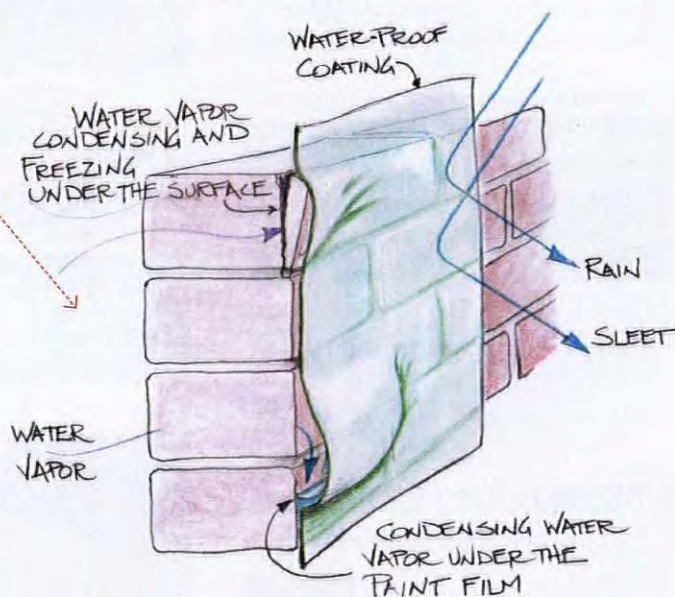 WATER-PROOF
COATING
WATER VAPOR
CONDENSING AND
FREEZING
UNDER THE SURFACE
RAIN
SLEET
WATER
VAPOR
CONDENSING WATER
VAPOR UNDER THE
PAINT FILM